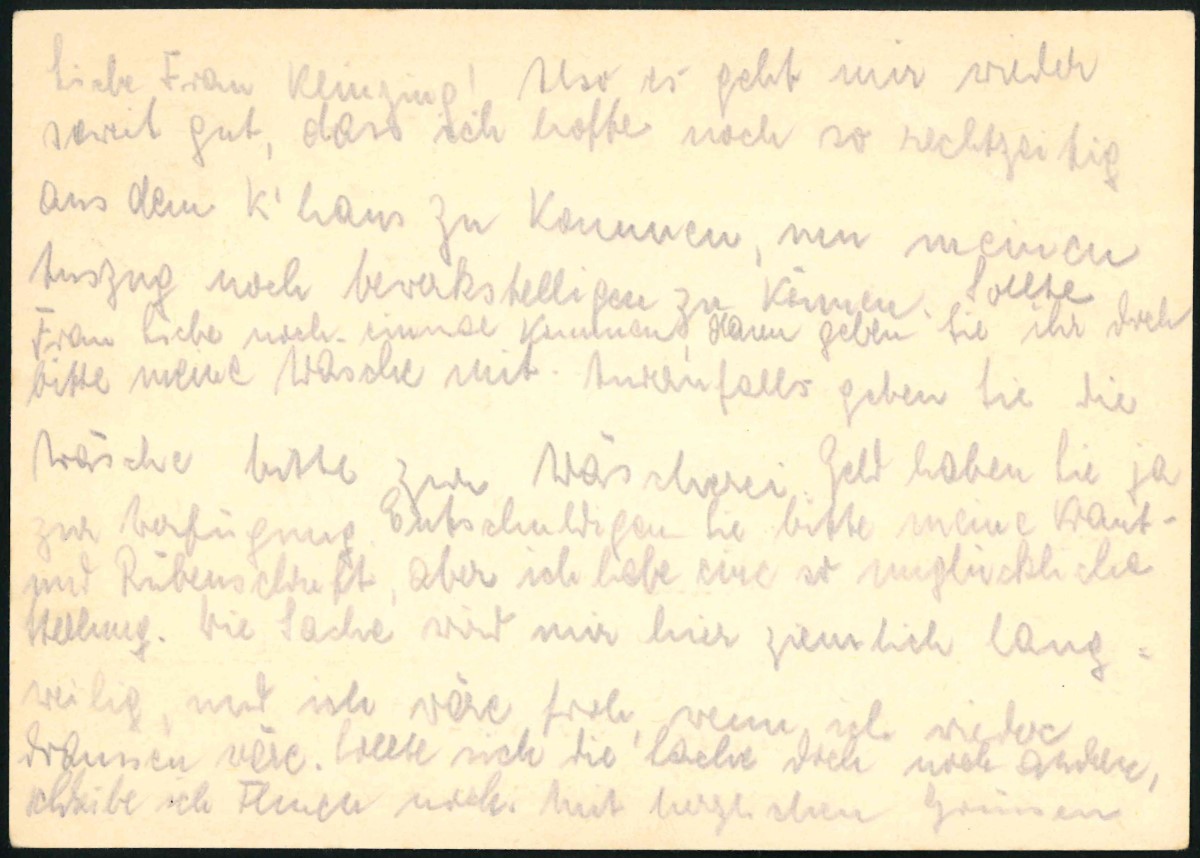 Liebe Frau Klinzing! Also es geht mir wieder
soweit gut, dass ich hoffe noch so rechtzeitig
aus dem K'haus zu kommen, um meinen
Auszug noch bewerkstelligen zu können. Sollte
Frau Liebe noch einmal kommen, dann geben Sie ihr doch
bitte meine Wäsche mit. Andernfalls geben Sie die
Wäsche bitte zur Wäscherei. Geld haben Sie ja
zur Verfügung. Entschuldigen Sie bitte meine Kraut-
und Rübenschrift, aber ich habe eine so unglückliche
Stellung. Die Sache wird mir hier ziemlich lang-
weilig, und ich wäre froh, wenn ich wieder
draussen wäre. Sollte sich die Sache doch noch ändern,
schreibe ich Ihnen noch. Mit herzlichen Grüssen